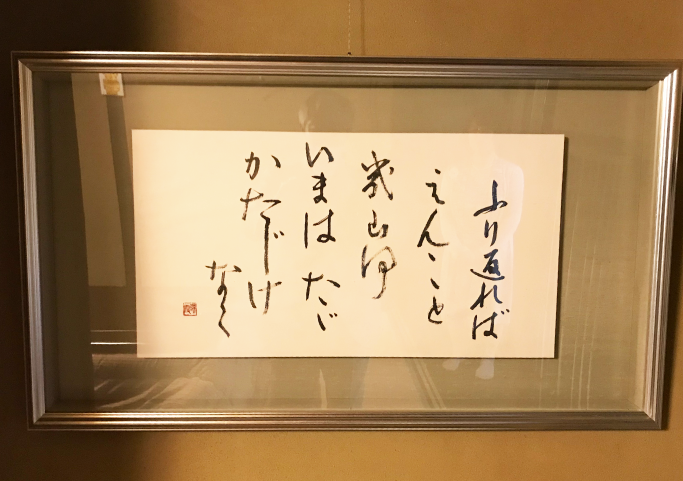 ふり返れば
えん〻と
幾山河
いまはただ
かたじけ
なく